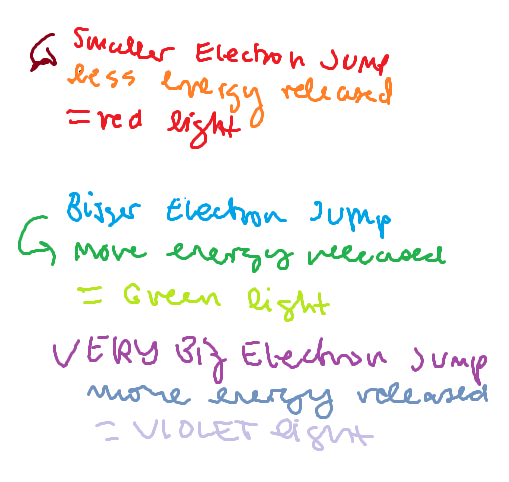 Smaller Electron Jump
less energy released
= red light
Bigger Electron Jump
more energy released
= Green light
VERY Big Electron Jump
more energy released
= VIOLET light